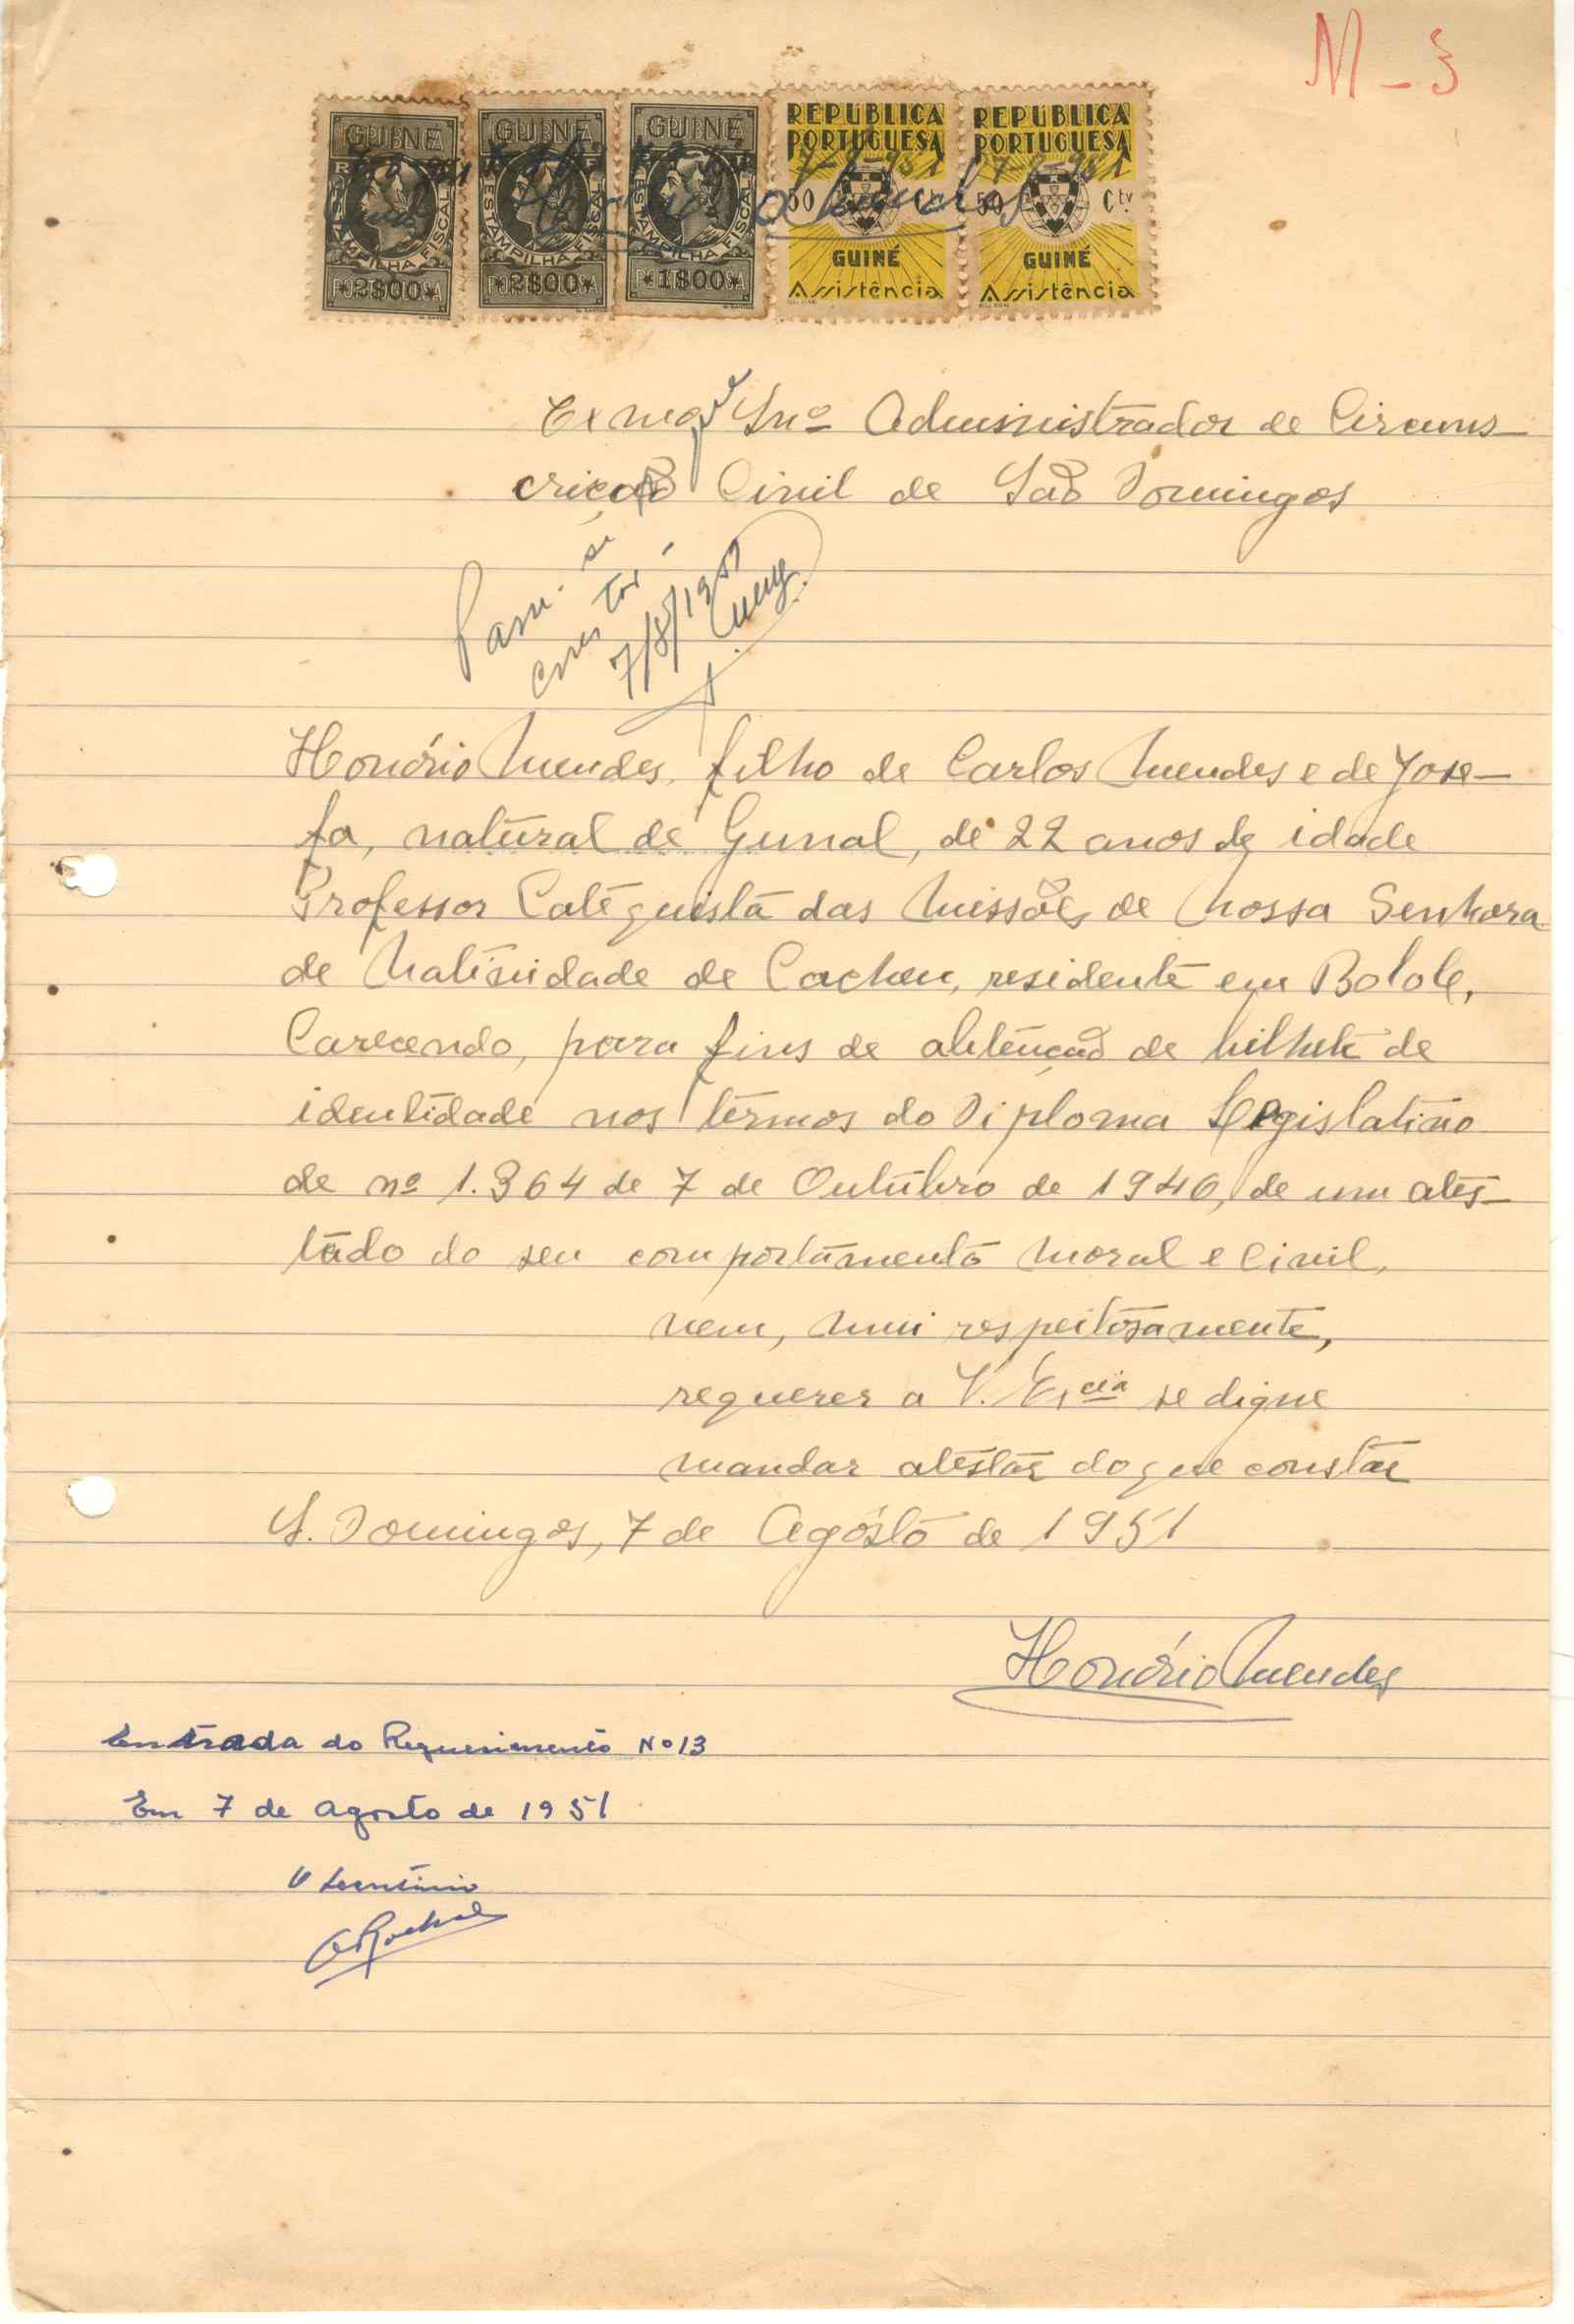 M - 3
GUINÉ GUINÉ GUINÉ REPUBLICA PORTUGUESA REPUBLICA PORTUGUESA
7-8-951 7-8-951
Honório Mendes
50 Ctv 50 Ctv
ESTAMPILHA FISCAL ESTAMPILHA FISCAL ESTAMPILHA FISCAL GUINÉ GUINÉ
*2$00* *2$00* *1$00* Assistência Assistência
Exmo Snro Administrador de Circuns-
crição Civil de São Domingos
Passe-se
7/8/1951
Honório Mendes, filho de Carlos Mendes e de Jose-
fa, natural de Gunal, de 22 anos de idade
Professor Catequista das Missões de Nossa Senhora
de Natividade de Cacheu, residente em Bolole,
Carecendo, para fins de obtenção de bilhete de
identidade nos têrmos do Diploma Legislativo
de nº 1.364 de 7 de Outubro de 1946, de um ates-
tado do seu comportamento moral e Civil,
vem, mui respeitosamente,
requerer a V. Excia se digne
mandar atestar do que constar
S. Domingos, 7 de Agôsto de 1951
Honório Mendes
Entrada do Requerimento Nº 13
Em 7 de Agosto de 1951
O Secretário